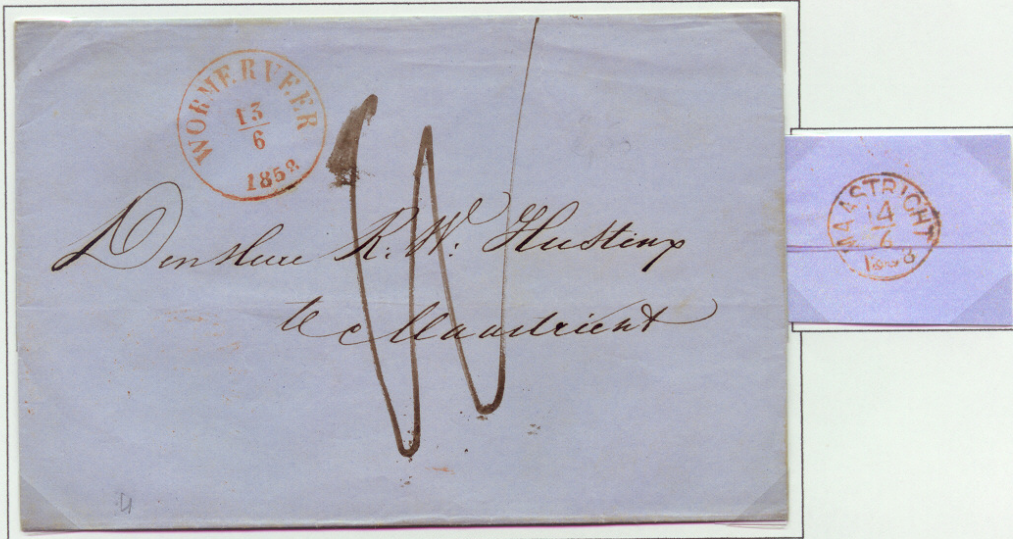 WORMERVEER
13
6
1858
Den Heere R. W. Hustinx
te Maastricht
MAASTRICHT
14
6
1858